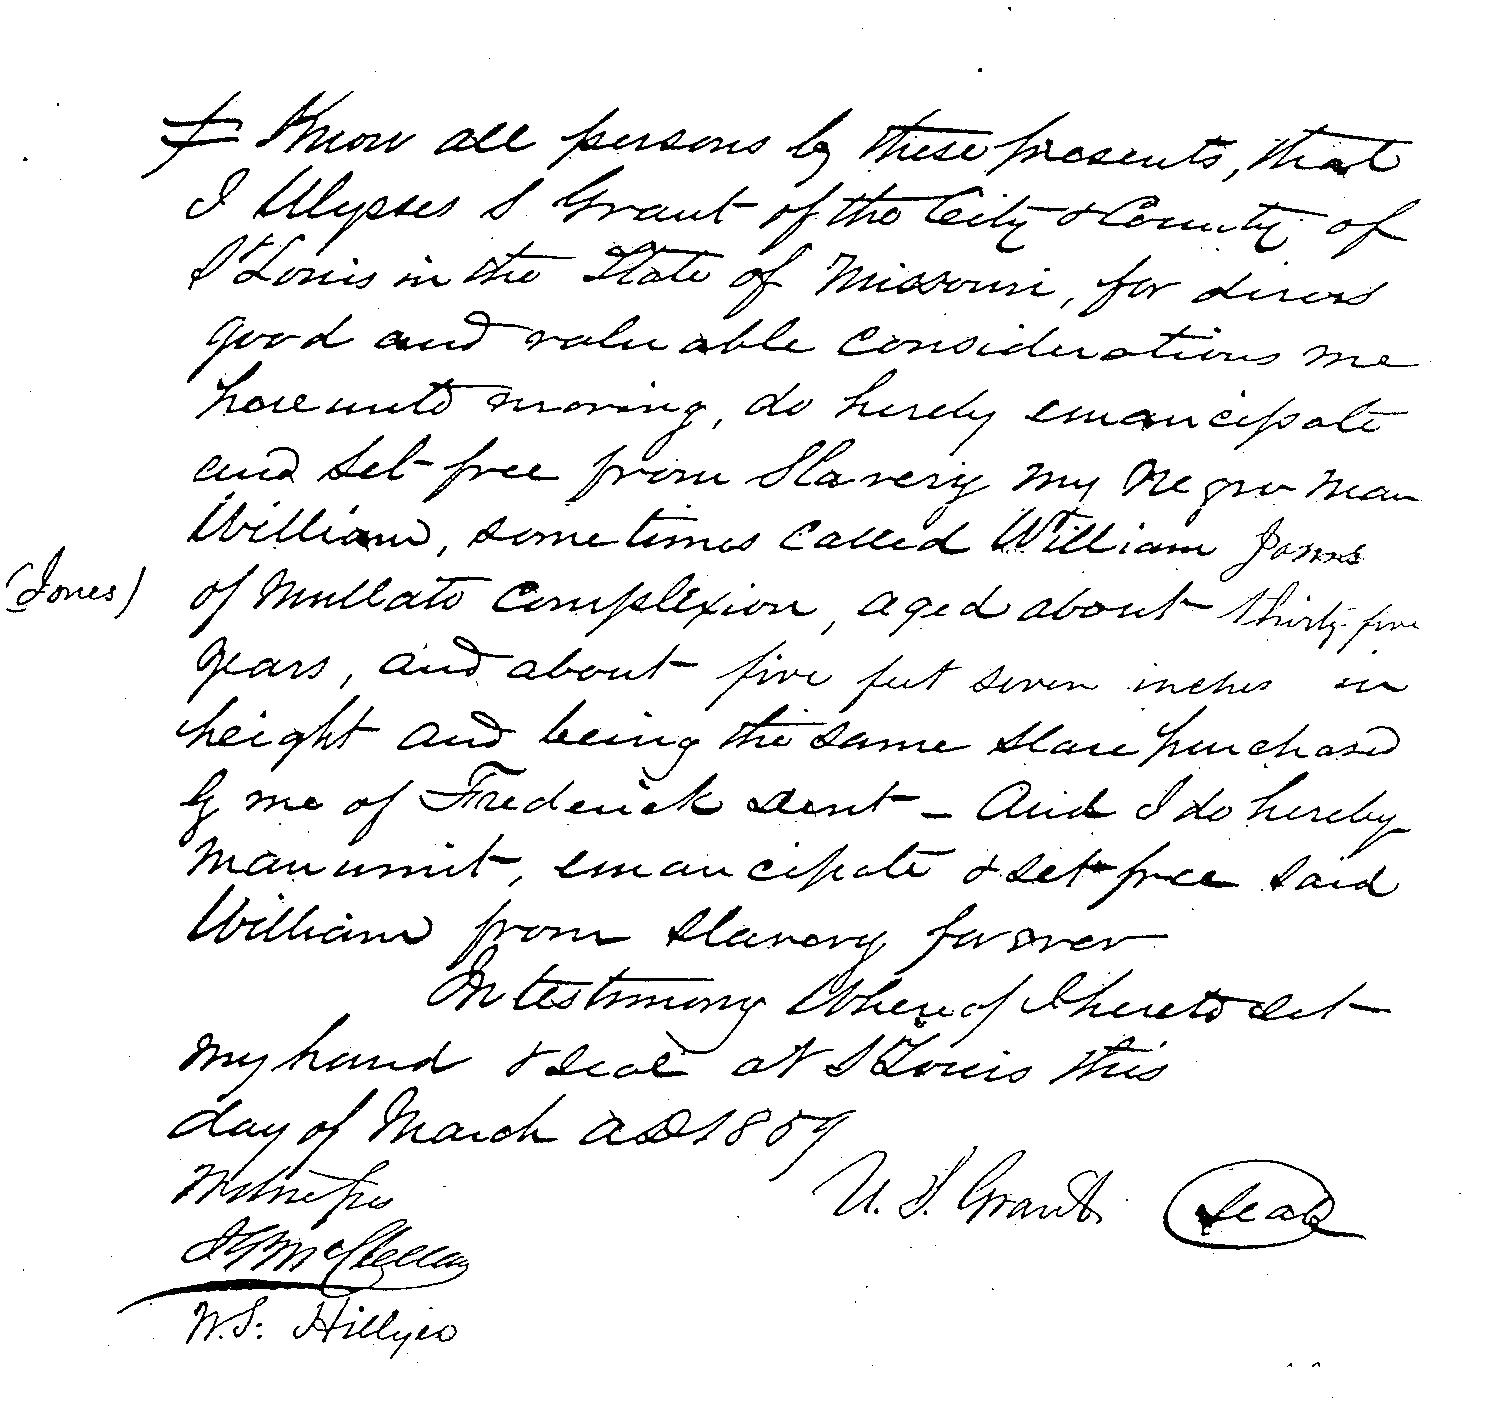 Know all persons by these presents, that
I Ulysses S Grant of the City & County of
St Louis in the State of Missouri, for divers
good and valuable considerations me
hereunto moving, do hereby emancipate
and set free from Slavery my Negro man
William, sometimes called William Jones
(Jones)
of Mullato complexion, aged about thirty-five
years, and about five feet seven inches in
height and being the same slave purchased
by me of Frederick Dent - And I do hereby
manumit, emancipate & set free said
William from slavery forever
In testimony Whereof I hereto set
my hand & seal at St Louis this
day of March AD 1859
Witnesses
J G McClellan
W.S. Hillyer
U. S. Grant
Seal